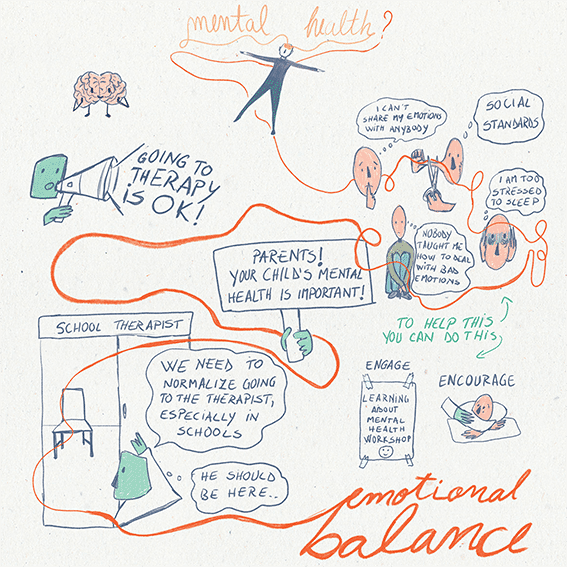 mental health?
I CAN'T
SHARE MY EMOTIONS
WITH ANYBODY
SOCIAL
STANDARDS
GOING TO
THERAPY
IS OK!
I AM TOO
STRESSED
TO SLEEP
NOBODY
TAUGHT ME
HOW TO DEAL
WITH BAD
EMOTIONS
PARENTS!
YOUR CHILD'S MENTAL
HEALTH IS IMPORTANT!
TO HELP THIS
YOU CAN DO THIS
SCHOOL THERAPIST
WE NEED TO
NORMALIZE GOING
TO THE THERAPIST,
ESPECIALLY IN
SCHOOLS
HE SHOULD
BE HERE..
ENGAGE
LEARNING
ABOUT
MENTAL
HEALTH
WORKSHOP
ENCOURAGE
emotional
balance